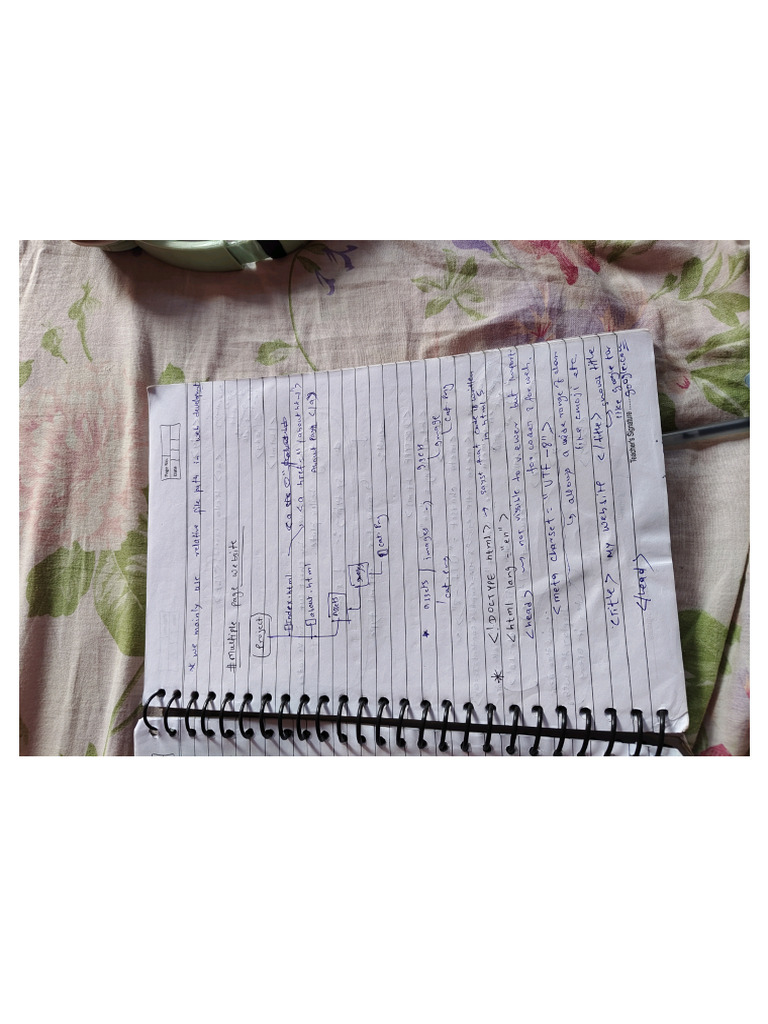 Page No.
Date
* we mainly use relative file path in web devlopment
# Multiple page website
Project
index.html
<a href="/about.html">
about Page </a>
about.html
assets
image
cat Png
* assets / images →
/ cat Png
cat Png
* <!DOCTYPE html> → says that code is written
in html 5
<html lang = "en">
<head> → not visible to viewer but import
for coders & the web.
<meta charset = "UTF-8">
↳ allows a wide range of char
like emoji etc
<title> MY website </title> ↳ shows title
like google for
google.com
</head>
Teacher's Signature